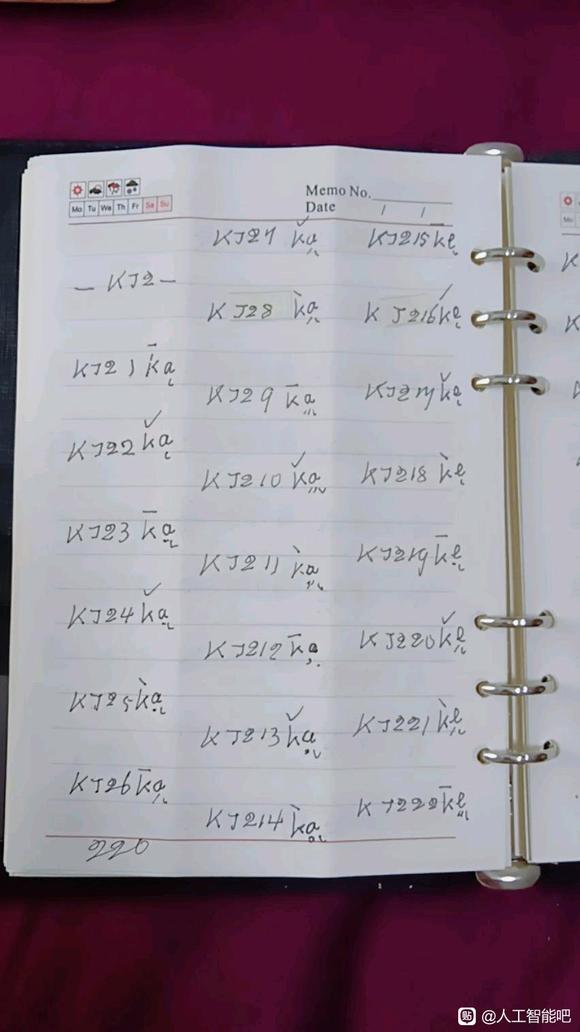 Memo No.
Mo Tu We Th Fr Sa Su
Date / /
— KJ2 —
KJ21 k̄a
KJ22 ǩa
KJ23 k̄a
KJ24 ǩa
KJ25 k̀a
KJ26 k̄a
220
KJ27 ǩa
KJ28 k̀a
KJ29 k̄a
KJ210 ǩa
KJ211 k̀a
KJ212 k̄a
KJ213 ǩa
KJ214 k̀a
KJ215 k̄e
KJ216 ǩe
KJ217 ǩe
KJ218 k̀e
KJ219 k̄e
KJ220 ǩe
KJ221 k̀e
KJ222 k̄e
贴 @人工智能吧